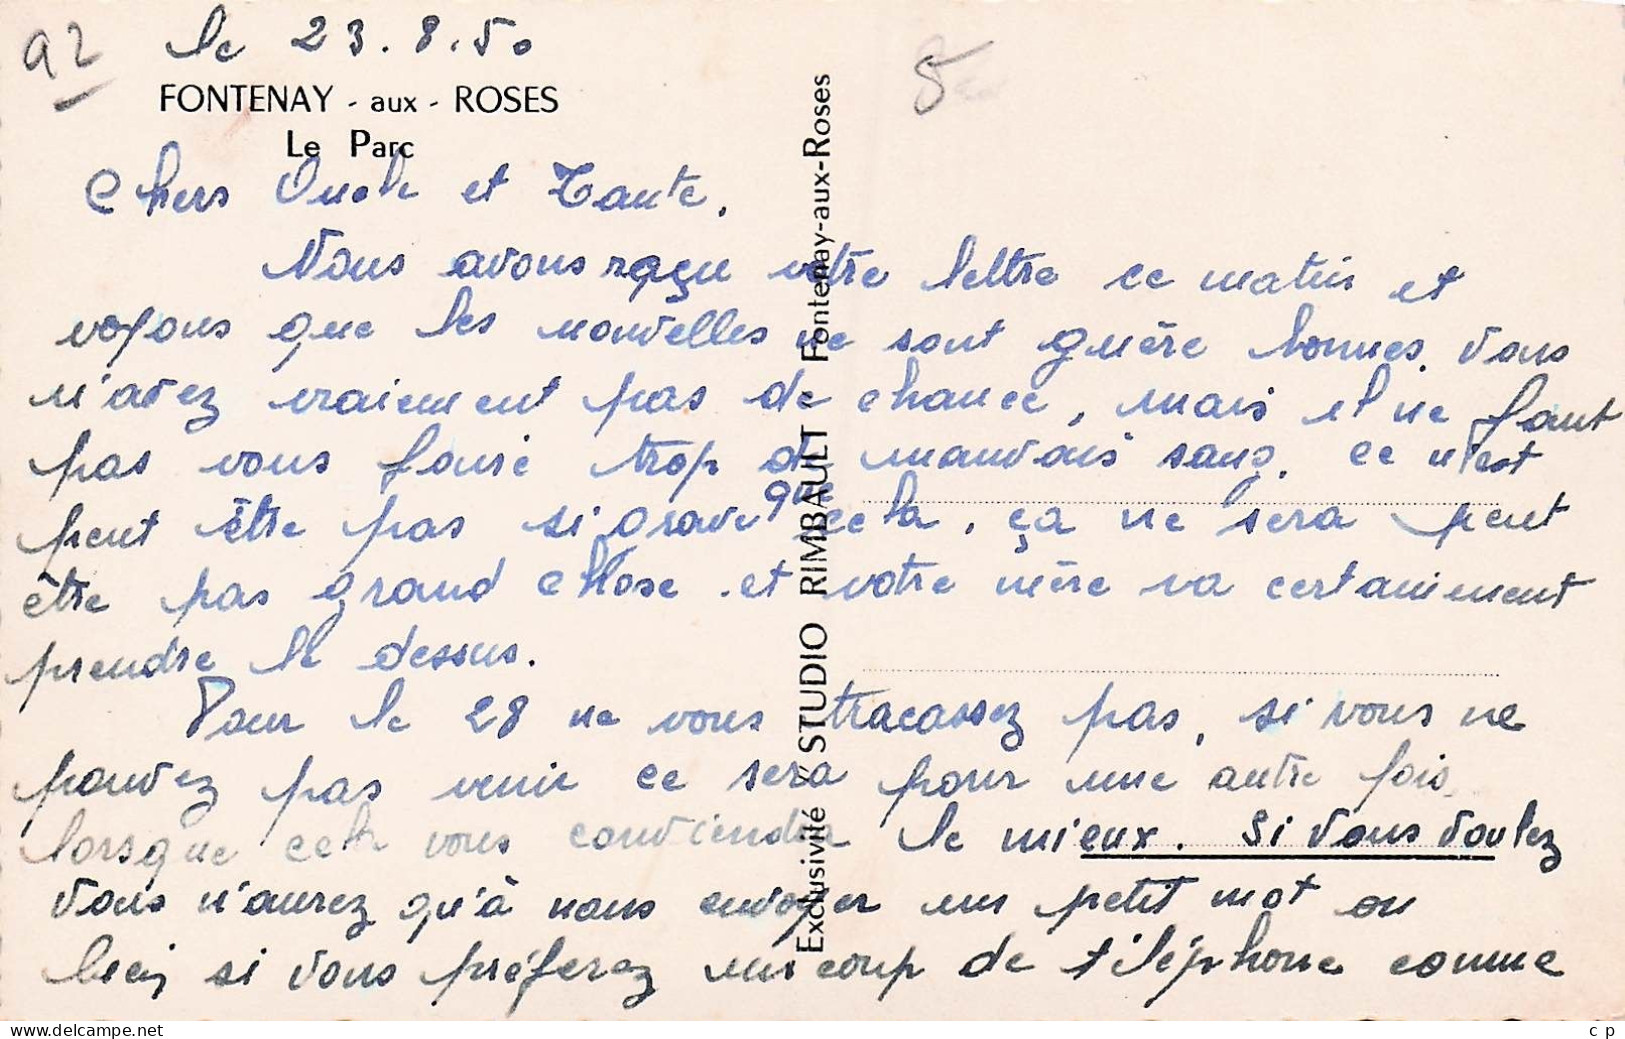 92 le 23.8.50
5
FONTENAY - aux - ROSES
Le Parc
Chers Oncle et Tante,
Nous avons reçu votre lettre ce matin et
voyons que les nouvelles ne sont guère bonnes. Vous
n'avez vraiement pas de chance, mais il ne faut
pas vous faire trop de mauvais sang. Ce n'est
peut être pas si grave que cela, ça ne sera peut
être pas grand chose et votre mère va certainement
prendre le dessus.
Pour le 28 ne vous tracassez pas, si vous ne
pouvez pas venir ce sera pour une autre fois
lorsque cela vous conviendra le mieux. Si vous voulez
vous n'aurez qu'à nous envoyer un petit mot ou
bien si vous préférez un coup de téléphone comme
Exclusivité "STUDIO RIMBAULT" Fontenay-aux-Roses
www.delcampe.net
c p